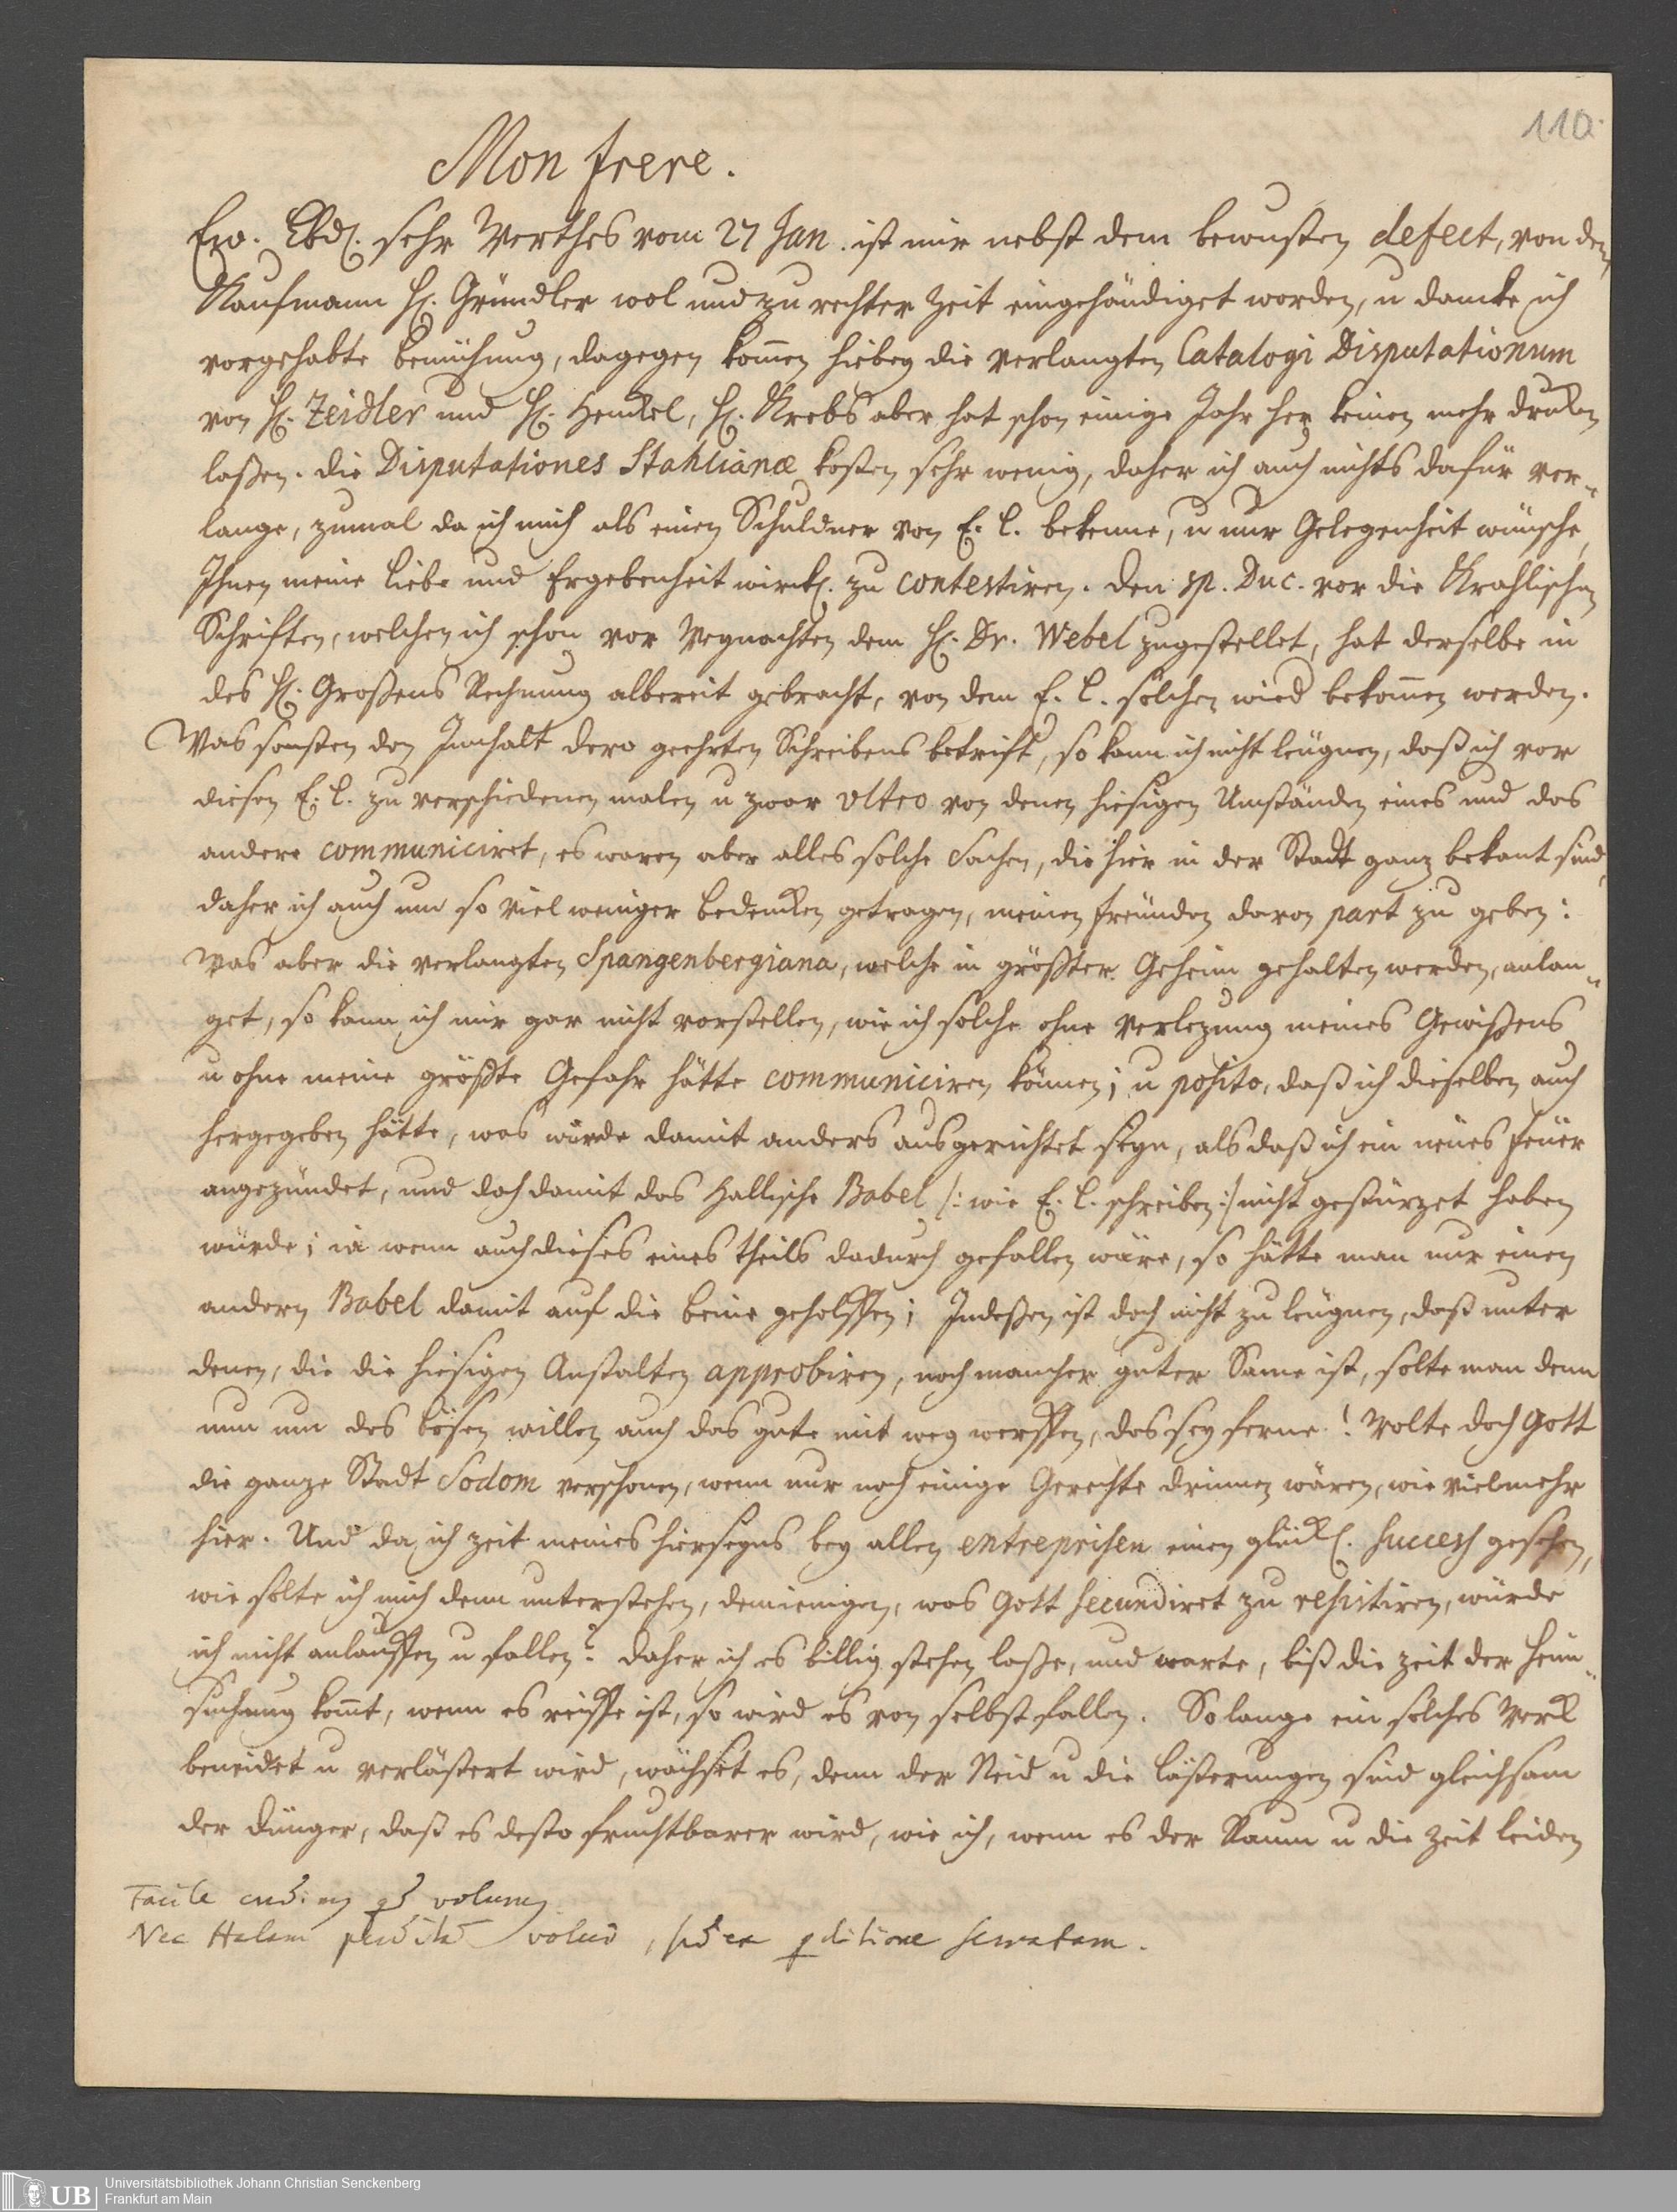 110.
Mon frere.
Ew. Lbd. sehr Werthes vom 27 Jan. ist mir nebst dem bewusten defect, von dem
Kaufmann H. Gründler wol und zu rechter Zeit eingehändiget worden, u dancke ich
vorgehabte bemühung, dagegen kom̄en hiebey die verlangten Catalogi Disputationum
von H. Zeidler und H. Henckel, H. Krebs aber hat schon einige Jahr her keinen mehr drucken
laßen. die Disputationes Stahlianæ kosten sehr wenig, daher ich auch nichts dafür ver-
lange, zumal da ich mich als einen Schuldner von E. L. bekenne, u nur Gelegenheit wünsche,
Ihnen meine Liebe und Ergebenheit wirckl. zu contestiren. den sp. Duc. vor die Krahlischen
Schriften, welchen ich schon vor Weynachten dem H. Dr. Webel zugestellet, hat derselbe in
des H. Großens Rechnung albereit gebracht, von dem E. L. solchen wird bekom̄en werden.
Was sonsten den Innhalt dero geehrten Schreibens betrift, so kann ich nicht leügnen, daß ich vor
diesen E. L. zu verschiedenen malen u zwar ultro von denen hiesigen Umständen eines und das
andere communiciret, es waren aber alles solche Sachen, die hier in der Stadt ganz bekant sind,
daher ich auch um so viel weniger bedencken getragen, meinen freünden davon part zu geben:
Was aber die verlangten Spangenbergiana, welche in gröster Geheim gehalten werden, anlan-
get, so kann ich mir gar nicht vorstellen, wie ich solche ohne verlezung meines Gewißens
u ohne meine größte Gefahr hätte communiciren können; u posito, daß ich dieselben auch
hergegeben hätte, was würde damit anders ausgerichtet seyn, als daß ich ein neües feüer
angezündet, und doch damit das Hallische Babel /: wie E. L. schreiben :/ nicht gestürzet haben
würde; ia wenn auch dieses eines theils dadurch gefallen wäre, so hätte man nur einen
andern Babel damit auf die beine geholffen; Indeßen ist doch nicht zu leügnen, daß unter
denen, die die hiesigen Anstalten approbiren, noch mancher guter Same ist, solte man denn
nun um des bösen willen auch das gute mit weg werffen, das sey ferne! Wolte doch Gott
die ganze Stadt Sodom verschonen, wenn nur noch einige Gerechte drinnen wären, wie vielmehr
hier. Und da ich zeit meines hierseyns bey allen entreprisen einen glückl. success gesehen,
wie solte ich mich denn unterstehen, demienigen, was Gott secundiret zu resistiren, würde
ich nicht anlauffen u fallen? daher ich es billig stehen laße, und warte, biß die zeit der heim-
suchung kom̄t, wenn es reiffe ist, so wird es von selbst fallen. So lange ein solches Werck
beneidet u verlästert wird, wächset es, denn der Neid u die lästerungen sind gleichsam
der dünger, daß es desto fruchtbarer wird, wie ich, wenn es der Raum u die Zeit leiden
Facile volum
Nec Halam volui, perditione servatam.
UB Universitätsbibliothek Johann Christian Senckenberg
Frankfurt am Main